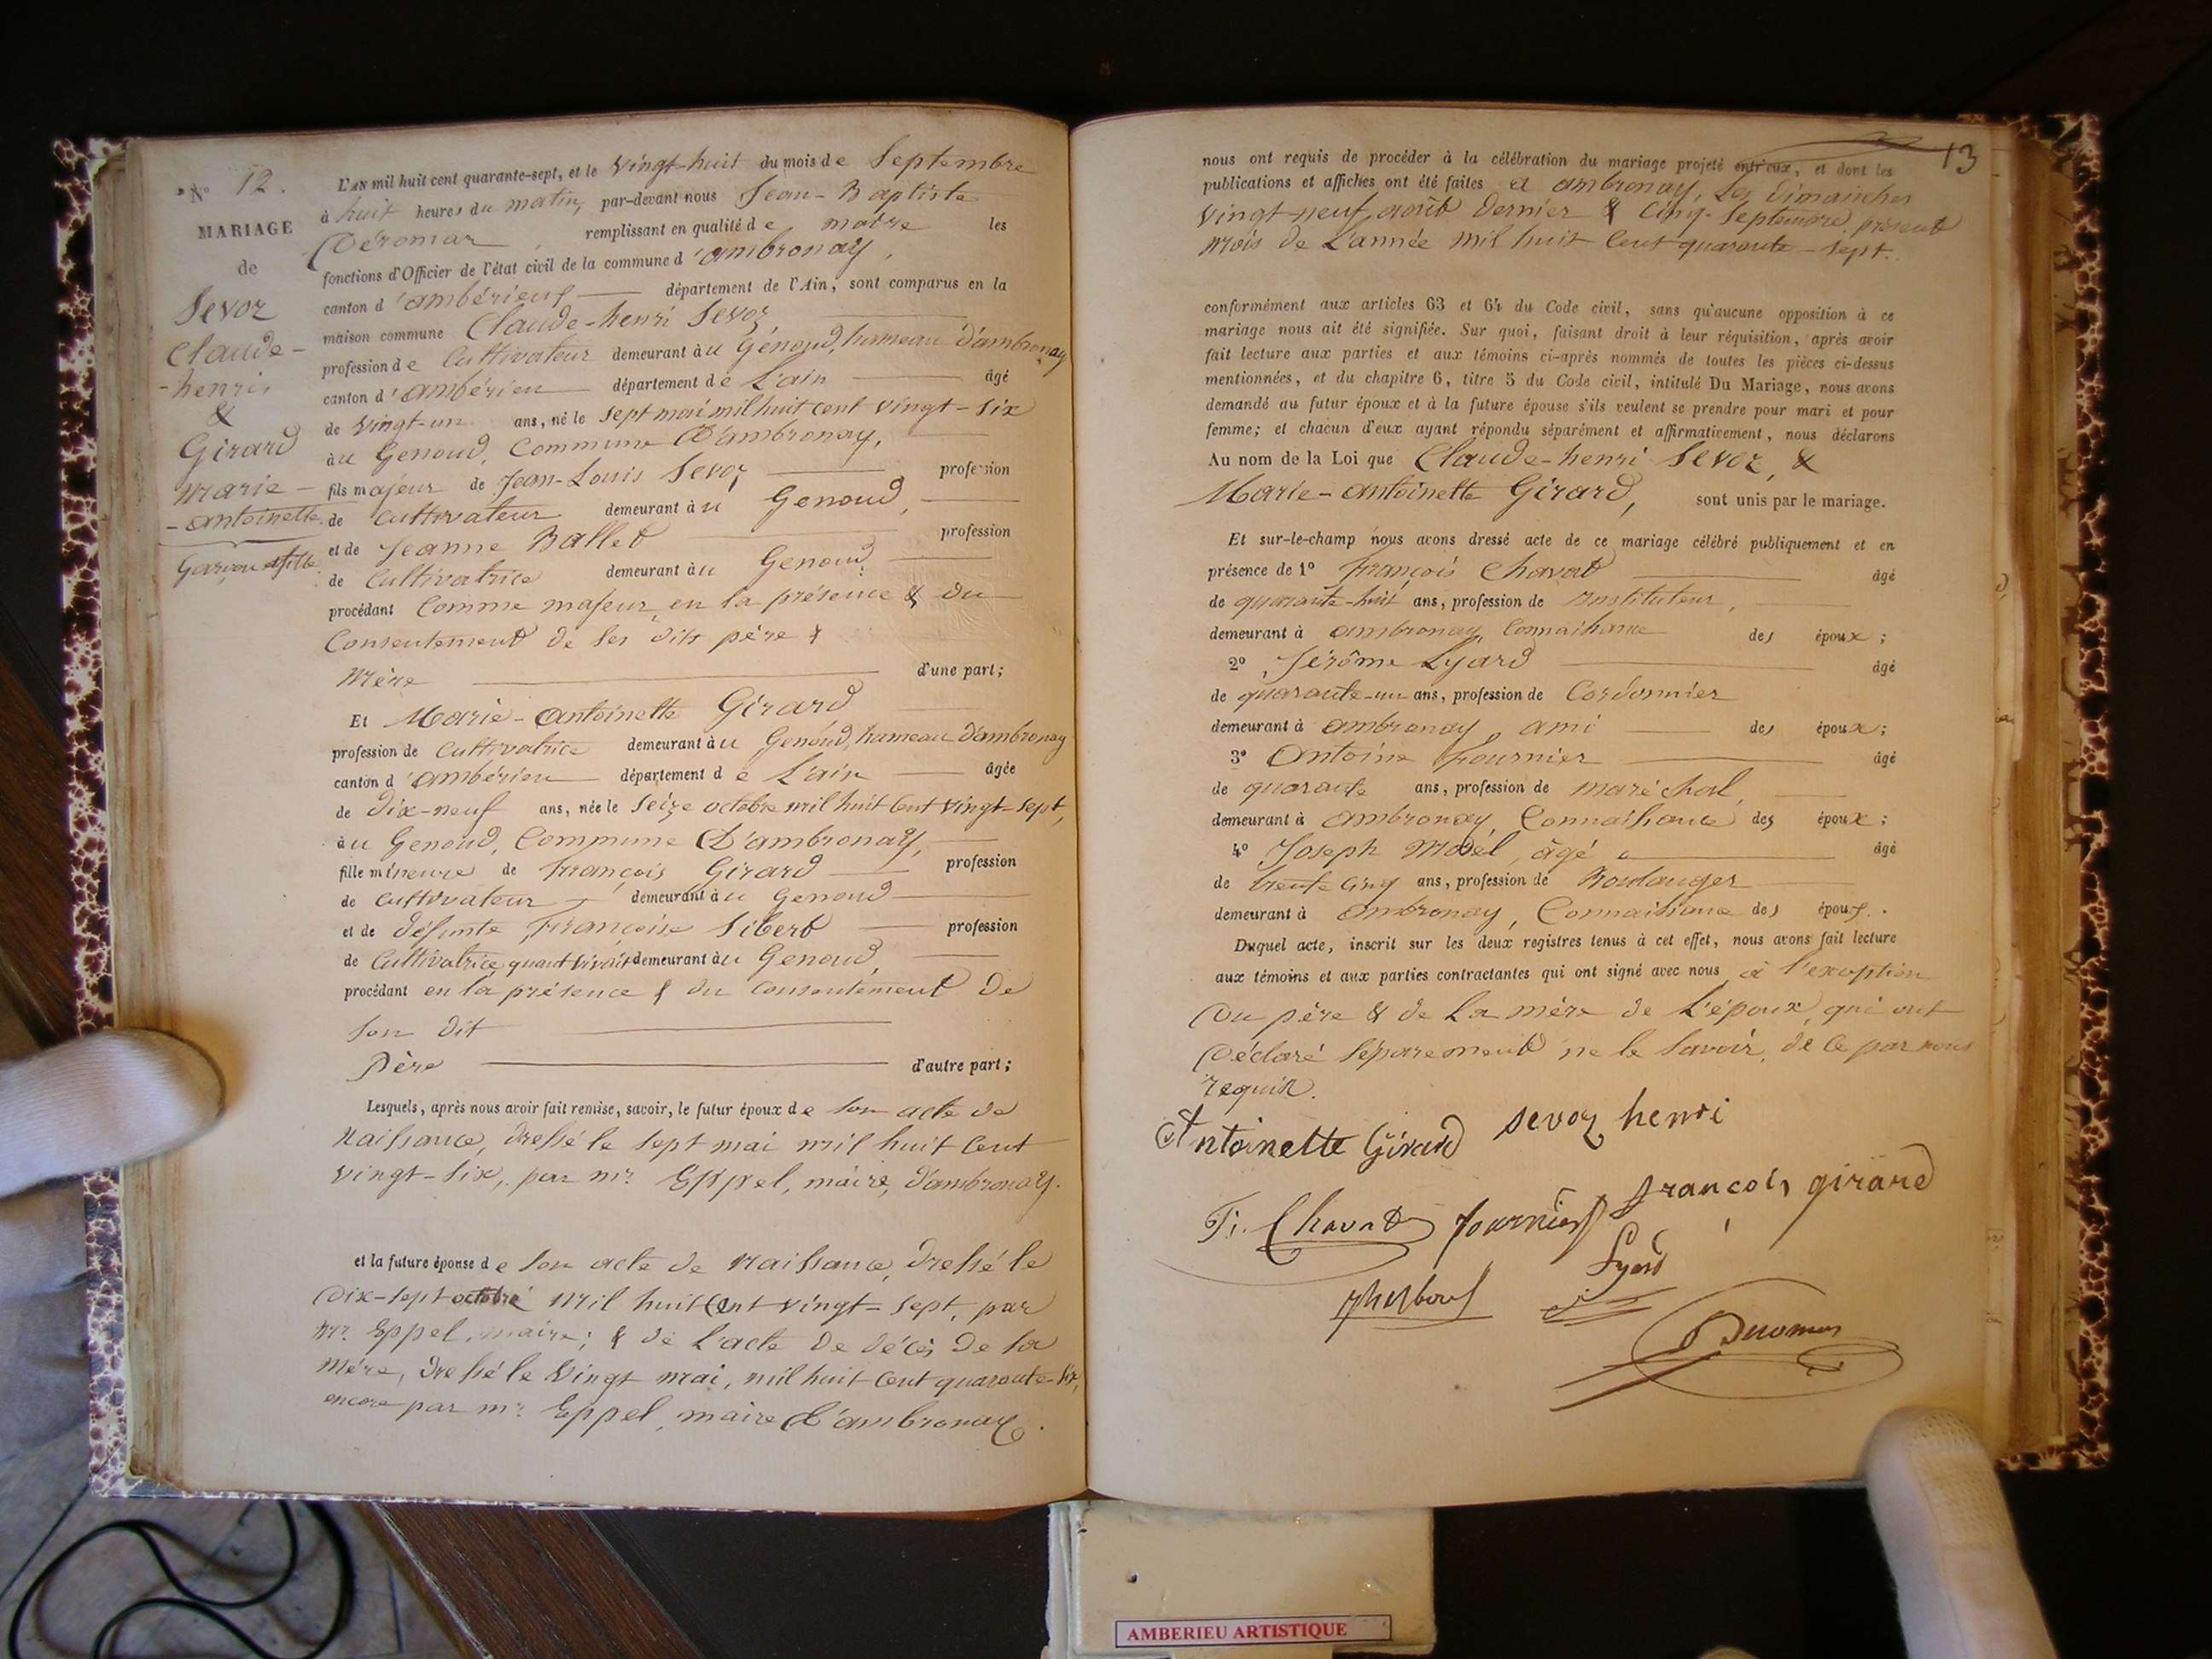 N° 12.
MARIAGE
de
Sevoz
Claude-
-henri,
&
Girard
Marie-
-antoinette.
Garçon & fille.
L'AN mil huit cent quarante-sept, et le Vingt-huit du mois de Septembre
à huit heures du matin, par-devant nous Jean-Baptiste
Déromas, remplissant en qualité de maire les
fonctions d'Officier de l'état civil de la commune d'ambronay,
canton d'ambérieux département de l'Ain, sont comparus en la
maison commune Claude-henri Sevoz
profession de Cultivateur demeurant àu Genoud, hameau d'ambronay
canton d'ambérieu département de L'ain âgé
de vingt-un ans, né le sept mai mil huit cent vingt-six
àu Genoud, Commune D'ambronay,
fils majeur de Jean-Louis Sevoz profession
de Cultivateur demeurant àu Genoud,
et de Jeanne Ballet profession
de Cultivatrice demeurant àu Genoud
procédant Comme majeur en la présence & du
Consentement de ses dits père &
Mère d'une part;
Et Marie-antoinette Girard
profession de Cultivatrice demeurant àu Genoud, hameau d'ambronay
canton d'ambérieu département de L'ain âgée
de Dix-neuf ans, née le Seize octobre mil huit Cent vingt-sept,
àu Genoud, Commune D'ambronay,
fille mineure de François Girard profession
de Cultivateur demeurant àu Genoud
et de défunte Françoise Sibert profession
de Cultivatrice, quant vivait demeurant àu Genoud,
procédant en la présence & du Consentement de
Son dit
Père d'autre part;
Lesquels, après nous avoir fait remise, savoir, le futur époux de son acte de
Naissance, dressé le sept mai mil huit Cent
vingt-six, par mr. Eppel, maire, d'ambronay.
et la future épouse de son acte de naissance, dressé le
Dix-sept octobre mil huit Cent vingt-sept, par
Mr. Eppel, maire; & de l'acte de décès de sa
Mère, dressé le Vingt mai, mil huit Cent quarante-six,
encore par mr. Eppel, maire d'ambronay.
13
nous ont requis de procéder à la célébration du mariage projeté entr'eux, et dont les
publications et affiches ont été faites a ambronay, Les Dimanches
vingt neuf août dernier & Cinq Septembre présent
mois de L'année mil huit Cent quarante-sept.
conformément aux articles 63 et 64 du Code civil, sans qu'aucune opposition à ce
mariage nous ait été signifiée. Sur quoi, faisant droit à leur réquisition, après avoir
fait lecture aux parties et aux témoins ci-après nommés de toutes les pièces ci-dessus
mentionnées, et du chapitre 6, titre 5 du Code civil, intitulé Du Mariage, nous avons
demandé au futur époux et à la future épouse s'ils veulent se prendre pour mari et pour
femme; et chacun d'eux ayant répondu séparément et affirmativement, nous déclarons
Au nom de la Loi que Claude-henri Sevoz, &
Marie-antoinette Girard, sont unis par le mariage.
Et sur-le-champ nous avons dressé acte de ce mariage célébré publiquement et en
présence de 1° François Chavat âgé
de quarante-huit ans, profession de Instituteur,
demeurant à ambronay, Connaissance des époux;
2° Jérôme Lyard âgé
de quarante-un ans, profession de Cordonnier
demeurant à ambronay, ami des époux;
3° Antoine Fournier âgé
de quarante ans, profession de maréchal,
demeurant à ambronay Connaissance des époux;
4° Joseph âgé âgé
de trente cinq ans, profession de Boulanger
demeurant à ambronay, Connaissance des époux.
Duquel acte, inscrit sur les deux registres tenus à cet effet, nous avons fait lecture
aux témoins et aux parties contractantes qui ont signé avec nous à l'exception
Du père & de La mère de L'époux, qui ont
Déclaré séparement ne le Savoir, de ce par nous
requis.
Antoinette Girard sevoz henri
françois girard
F. Chavat fournier
Lyard
Deromas
AMBERIEU ARTISTIQUE